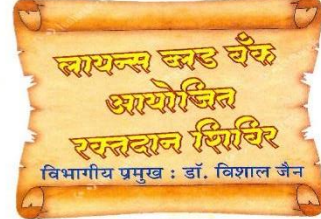 लायन्स ब्लड बँक
आयोजित
रक्तदान शिबिर
विभागीय प्रमुख : डॉ. विशाल जैन